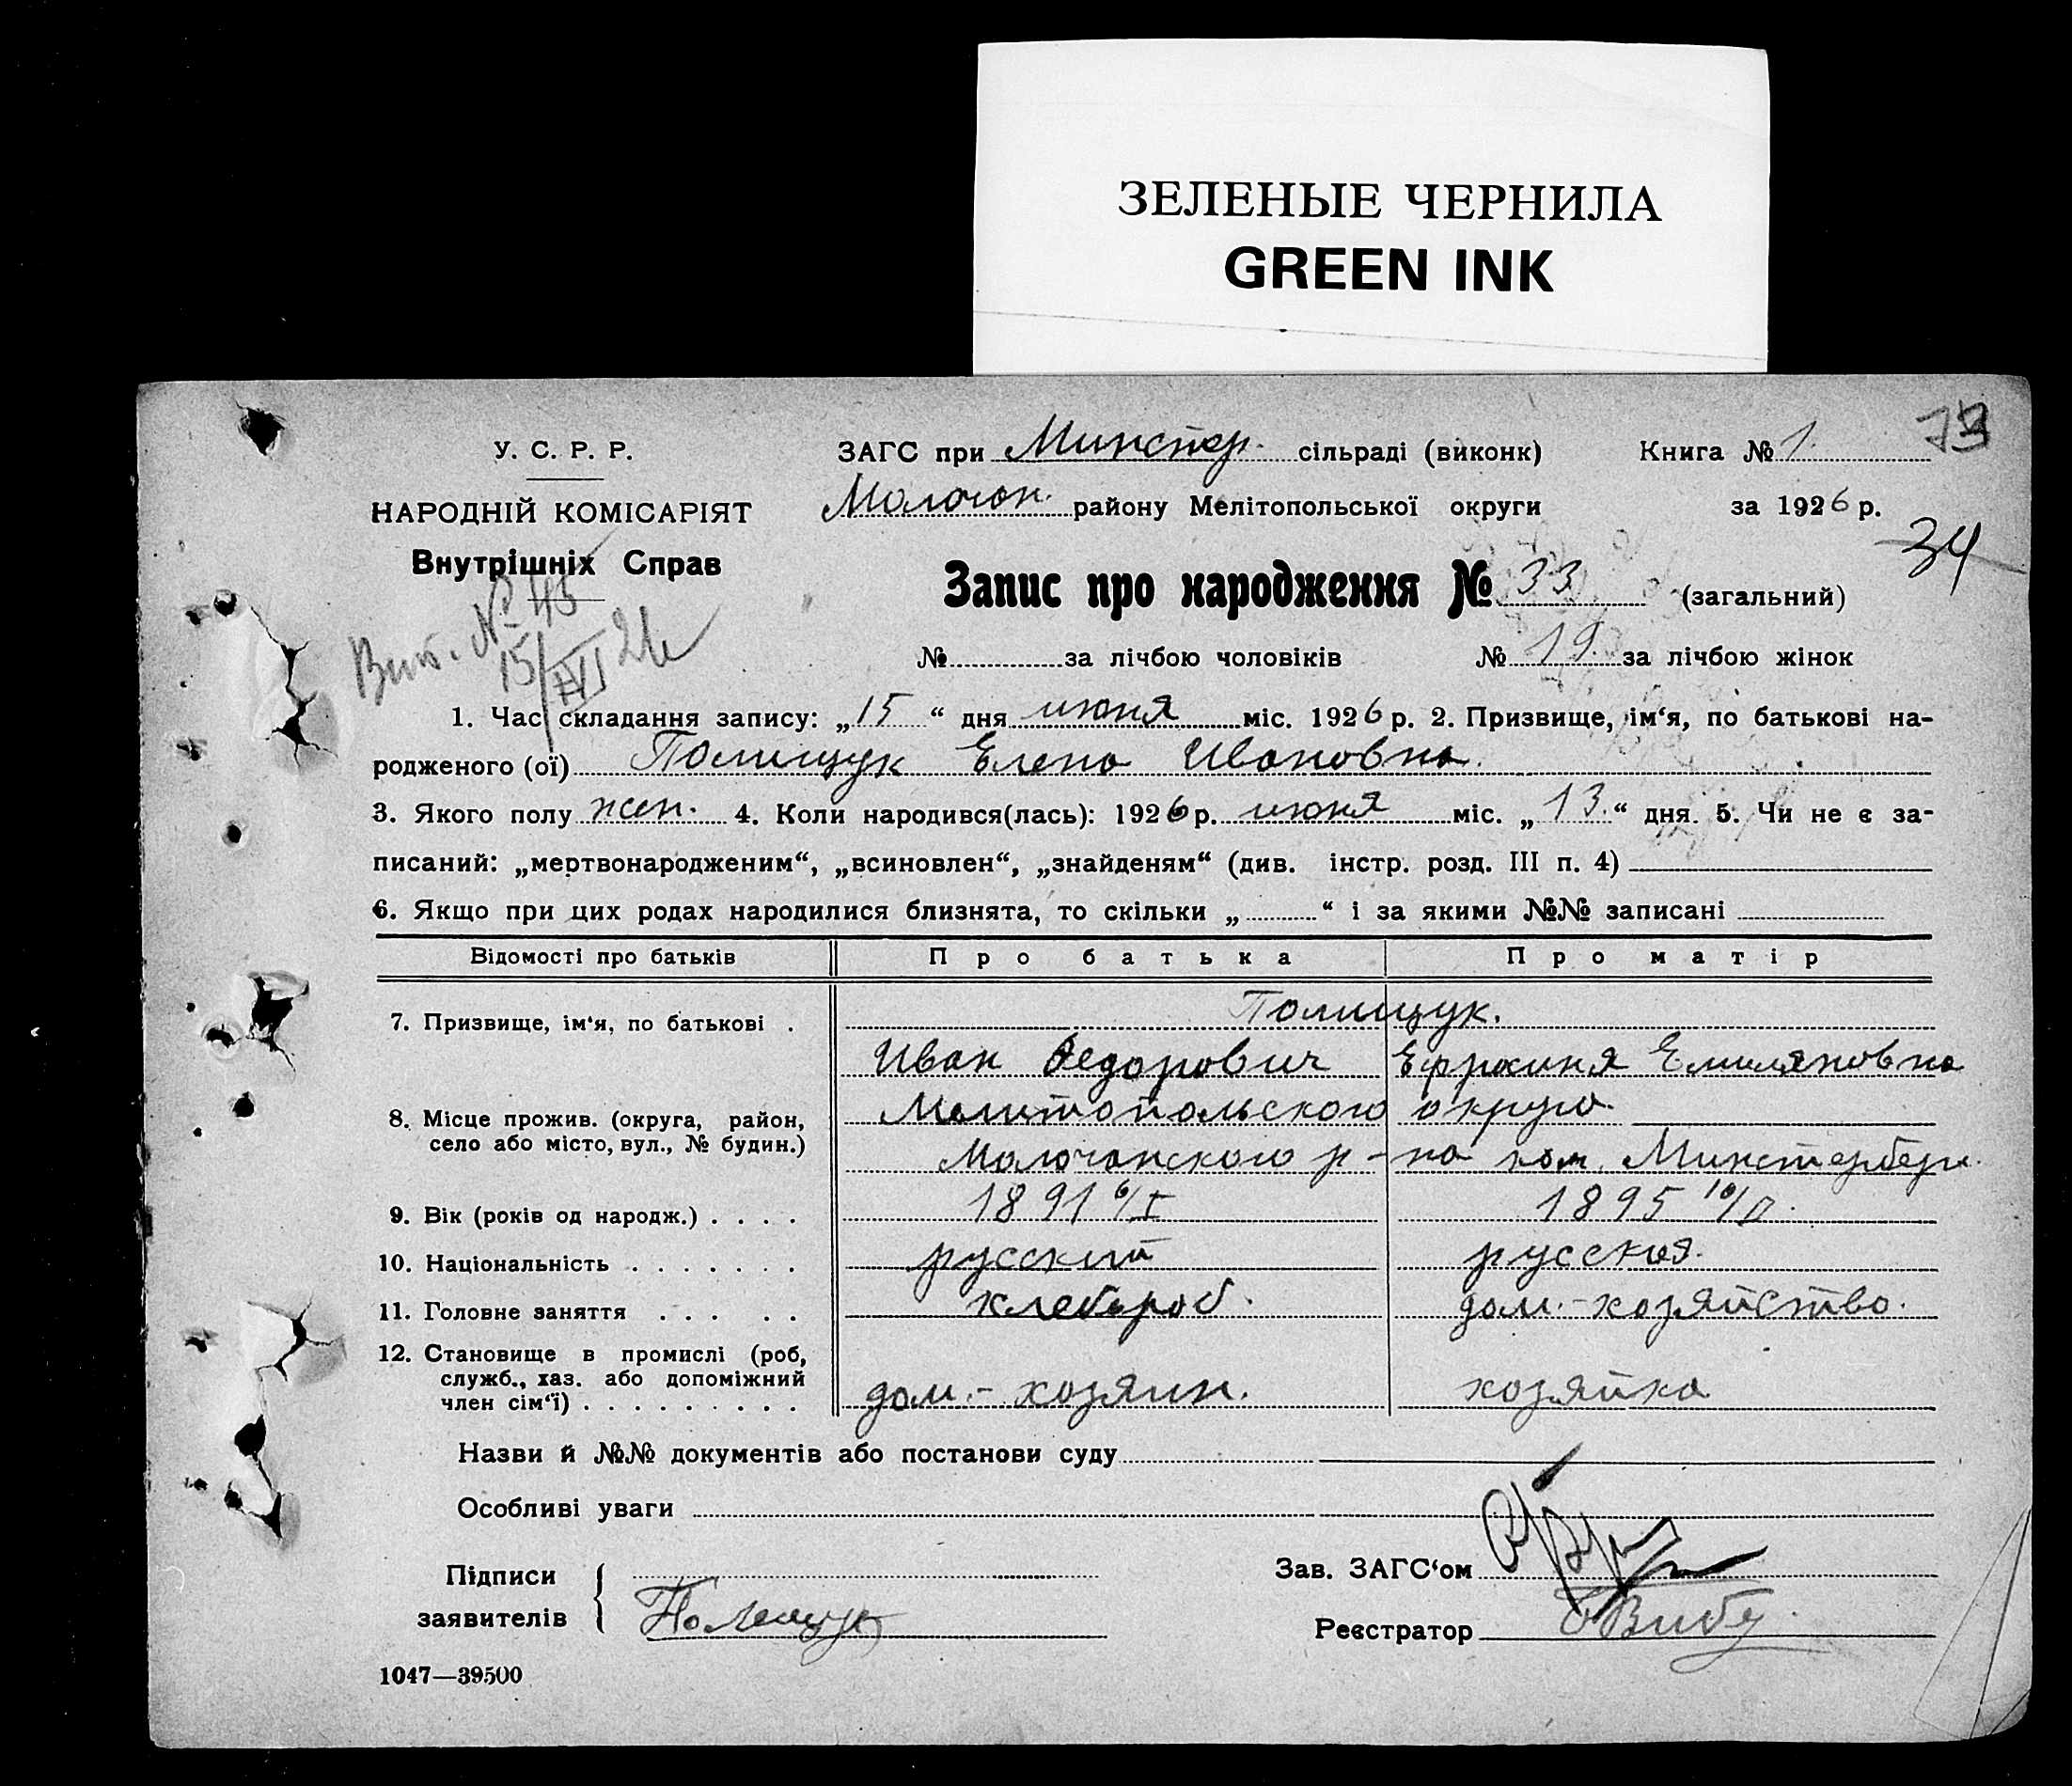 ЗЕЛЕНЫЕ ЧЕРНИЛА
GREEN INK
У. С. Р. Р.
НАРОДНІЙ КОМІСАРІЯТ
Внутрішніх Справ
Вип. № 45
15/VI 26
ЗАГС при Минстер. сільраді (виконк)
Молочан. району Мелітопольської округи
Книга № 1.
за 1926 р.
34
Запис про народження № 33 (загальний)
№ за лічбою чоловіків № 19. за лічбою жінок
1. Час складання запису: „15“ дня июня міс. 1926 р. 2. Призвище, ім‘я, по батькові на-
родженого (ої) Полищук Елена Ивановна.
3. Якого полу жен. 4. Коли народився(лась): 1926 р. июня міс. „13.“ дня. 5. Чи не є за-
писаний: „мертвонародженим“, „всиновлен“, „знайденям“ (див. інстр. розд. III п. 4)
6. Якщо при цих родах народилися близнята, то скільки „ “ і за якими №№ записані
Відомості про батьків Про батька Про матір
7. Призвище, ім‘я, по батькові . Полищук.
Иван Федорович Ефросиния Емиляновна
8. Місце прожив. (округа, район, село або місто, вул., № будин.) Мелитопольского округа
Молочанского р-на кол. Минстерберг.
9. Вік (років од народж.) . . . . 1891 6/I 1895 10/II.
10. Національність . . . . . . . русский русская.
11. Головне заняття . . . . . хлебороб. дом.-хозяйство.
12. Становище в промислі (роб, служб., хаз. або допоміжний член сім‘ї) . . . . . . . . . дом.-хозяин. хозяйка
Назви й №№ документів або постанови суду
Особливі уваги
Підписи
заявителів
Полищук
Зав. ЗАГС‘ом
Реєстратор
1047—39500